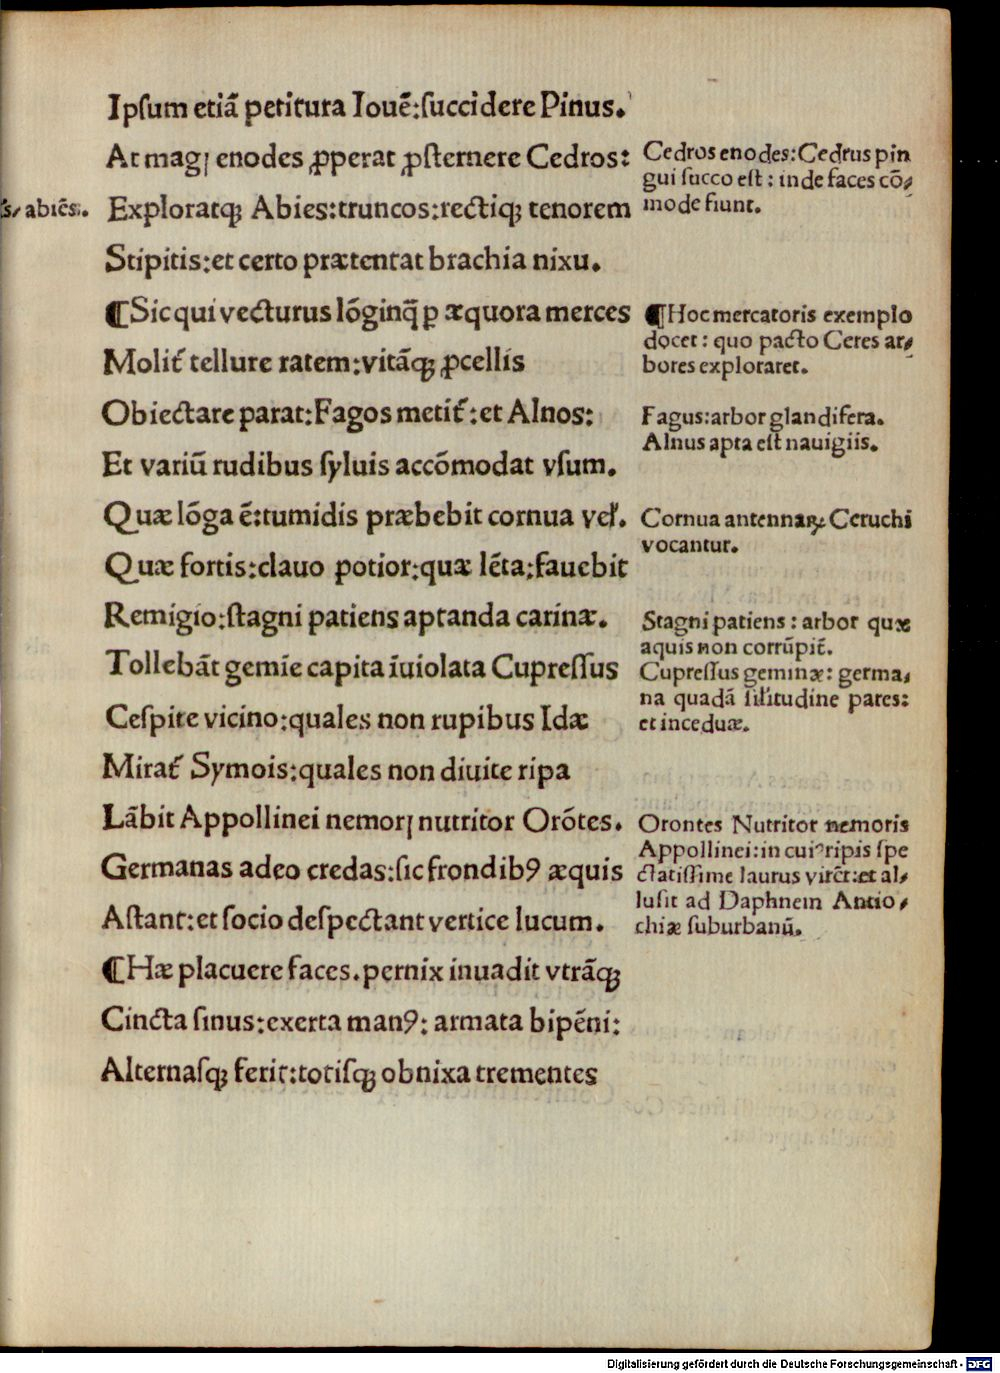 Ipſum etiã petitura Iouẽ:ſuccidere Pinus.
At magꝭ enodes ꝓperat ꝓſternere Cedros:
Exploratqꝫ Abies:truncos:rectiqꝫ tenorem
Stipitis:et certo prætentat brachia nixu.
¶Sic qui vecturus lõginq̃ p̲ æquora merces
Molit᷑ tellure ratem:vitãqꝫ ꝓcellis
Obiectare parat:Fagos metit᷑:et Alnos:
Et variũ rudibus ſyluis accõmodat vſum.
Quæ lõga ẽ:tumidis præbebit cornua vel᷑.
Quæ fortis:clauo potior:quæ lẽta:fauebit
Remigio:ſtagni patiens aptanda carinæ.
Tollebãt gemĩe capita ĩuiolata Cupreſſus
Ceſpite vicino:quales non rupibus Idæ
Mirat᷑ Symois:quales non diuite ripa
Lãbit Appollinei nemorꝭ nutritor Orõtes.
Germanas adeo credas:ſic frondibꝰ æquis
Aſtant:et ſocio deſpectant vertice lucum.
¶Hæ placuere faces.pernix inuadit vtrãqꝫ
Cincta ſinus:exerta manꝰ: armata bipẽni:
Alternaſqꝫ ferit:totiſqꝫ obnixa trementes
abiẽs.
Cedros enodes:Cedrus pin
gui ſucco eſt : inde faces cõ⸗
mode fiunt.
¶Hoc mercatoris exemplo
docet : quo pacto Ceres ar⸗
bores exploraret.
Fagus:arbor glandifera.
Alnus apta eſt nauigiis.
Cornua antennaꝝ Ceruchi
vocantur.
Stagni patiens : arbor quæ
aquis non corrũpit᷑.
Cupreſſus geminæ: germa⸗
na quadã ſil᷑itudine pares:
et inceduæ.
Orontes Nutritor nemoris
Appollinei:in cuiꝰ ripis ſpe
ctatiſſime laurus virẽt:et al⸗
luſit ad Daphnem Antio⸗
chiæ ſuburbanũ.
Digitalisierung gefördert durch die Deutsche Forschungsgemeinschaft - DFG